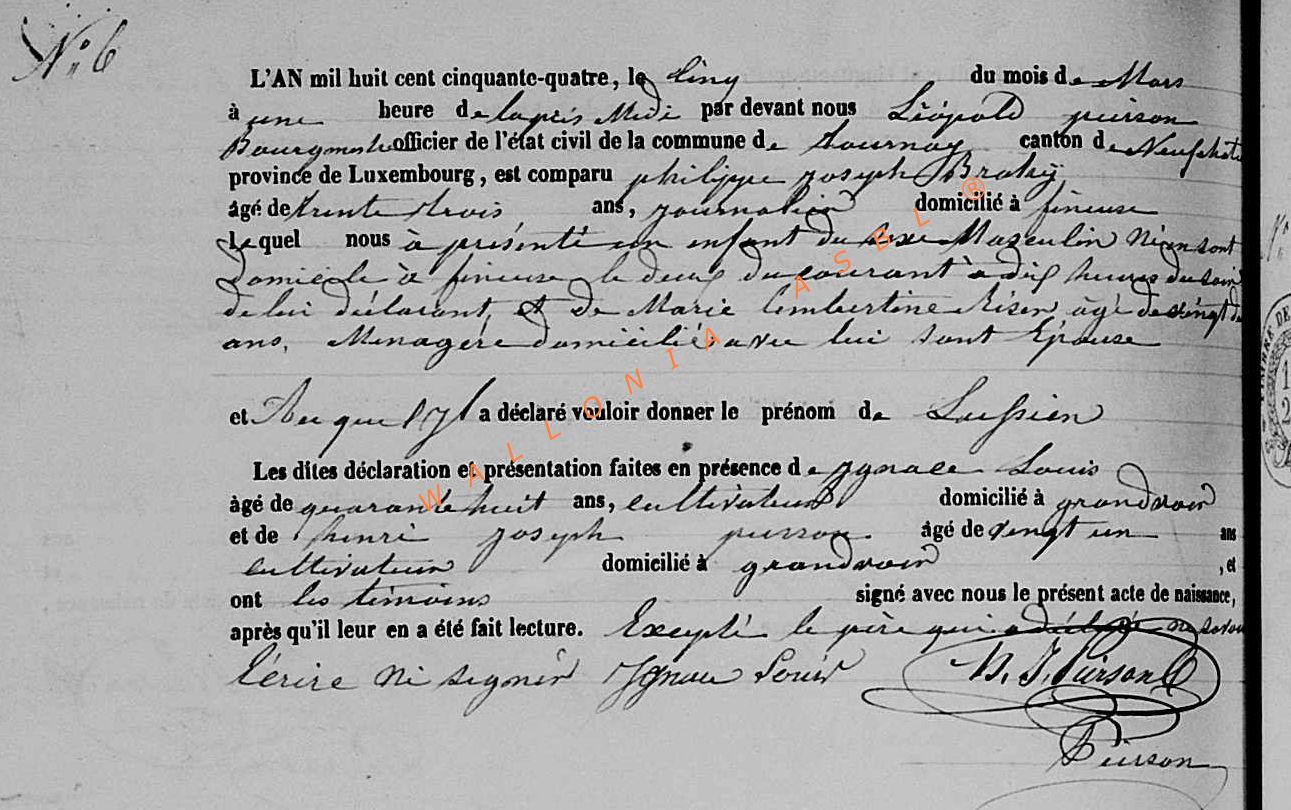 N° 6
L'AN mil huit cent cinquante-quatre, le cinq du mois de Mars
à une heure de laprés Medi par devant nous Léopold pierson
Bourgmestre officier de l'état civil de la commune de Tournay canton de Neufchate
province de Luxembourg, est comparu philippe joseph
âgé de trente trois ans, journalier domicilié à fineuse
Lequel nous à présenté un enfant du sexe Masculin Né en sont
Domicile à fineuse le deux du courant à dix heures du soir
de lui déclarant, et de Marie Lembertine agé de vingt
ans, Menagére domicilié avec lui sont Epouse
et Auquel il a déclaré vouloir donner le prénom de Lussien
Les dites déclaration et présentation faites en présence de Ignace Louis
âgé de quarante huit ans, cultivateur domicilié à grandvoir
et de henri joseph pierson âgé de vingt un ans
cultivateur domicilié à grandvoir , et
ont les témoins signé avec nous le présent acte de naissance,
après qu'il leur en a été fait lecture. Excepté le père qui a déclaré ne savoir
l'érire ni signér Ignace Louis H. J. Pierson
Pierson
WALLONIA ASBL ®